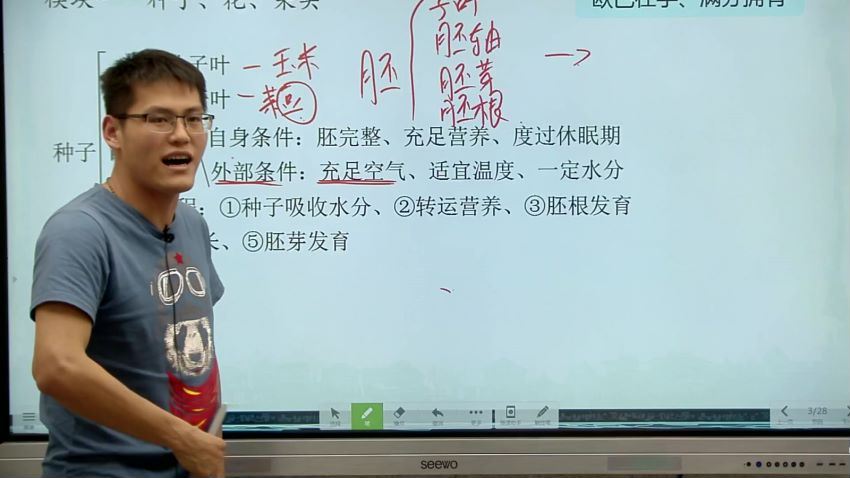 模块一 种子、花、果实
欧巴在学、满分拥有
子叶
胚轴
胚芽
胚根
胚
子叶 — 玉米
叶 —
种子
自身条件：胚完整、充足营养、度过休眠期
外部条件：充足空气、适宜温度、一定水分
①种子吸收水分、②转运营养、③胚根发育
长、⑤胚芽发育
3/28
seewo